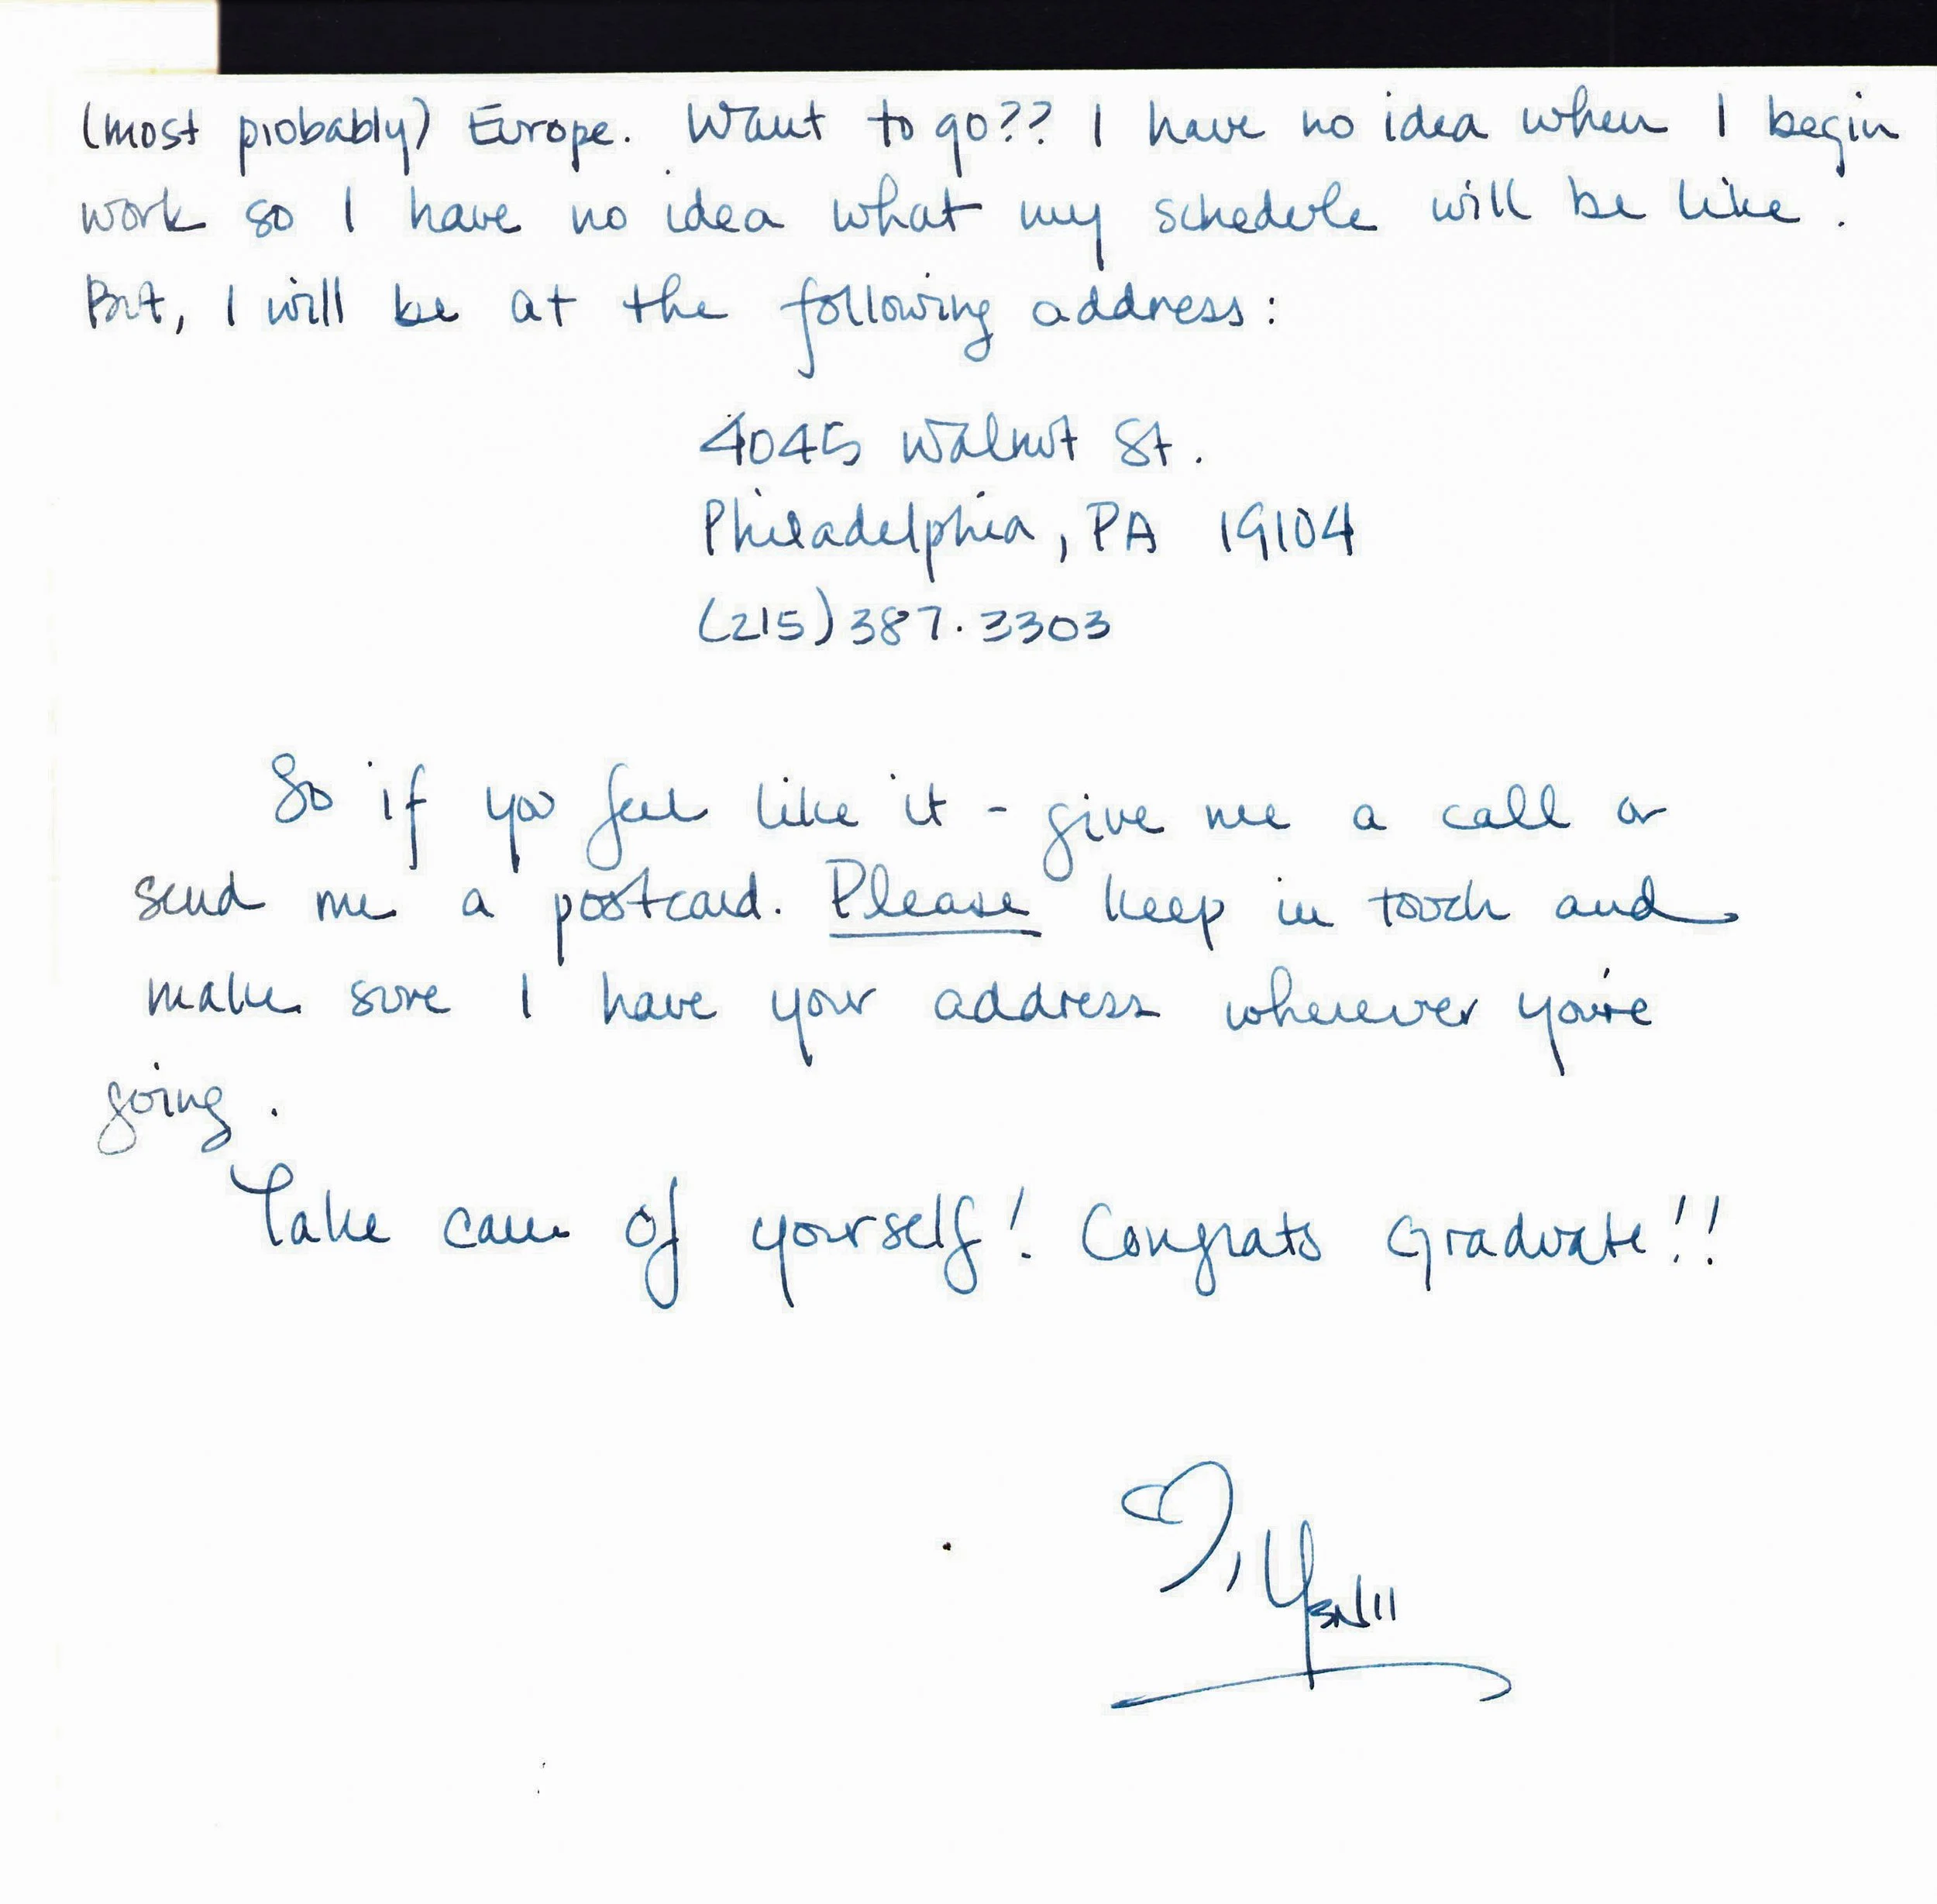 (most probably) Europe. Want to go?? I have no idea when I begin
work so I have no idea what my schedule will be like.
But, I will be at the following address:
4045 Walnut St.
Philadelphia, PA 19104
(215) 387.3303
So if you feel like it - give me a call or
send me a postcard. Please keep in touch and
make sure I have your address wherever you're
going.
Take care of yourself! Congrats Graduate!!